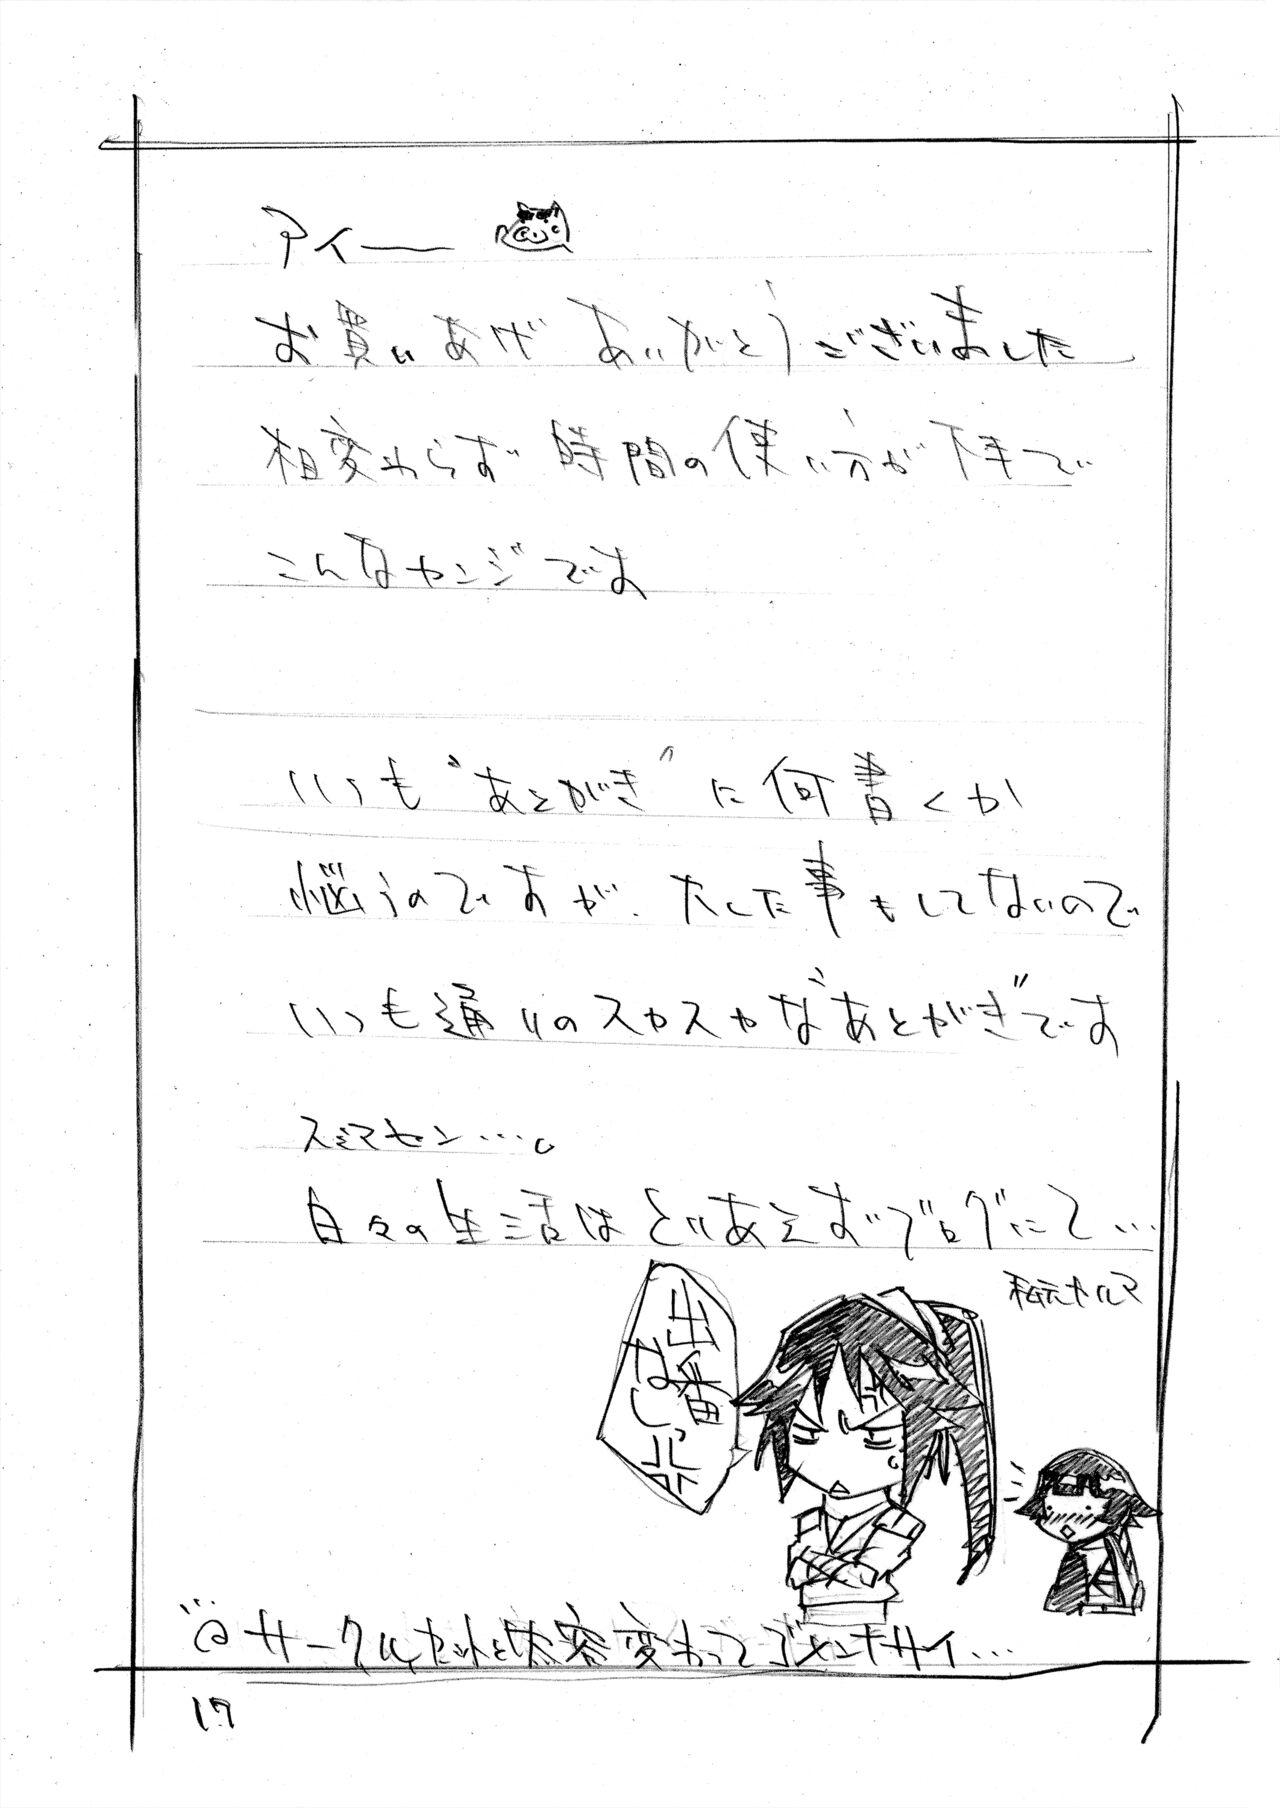 アイー
お買いあげ ありがとうございました
相変わらず 時間の使い方が下手で
こんなカンジです
いつも"あとがき"に何書くか
悩うのですが、たした事もしてないので
いつも通りのスカスカな"あとがき"です
スミマセン…。
日々の生活はとりあえずブログにて…
出番
なしっ
サークルカットと内容変わってゴメンナサイ…
17